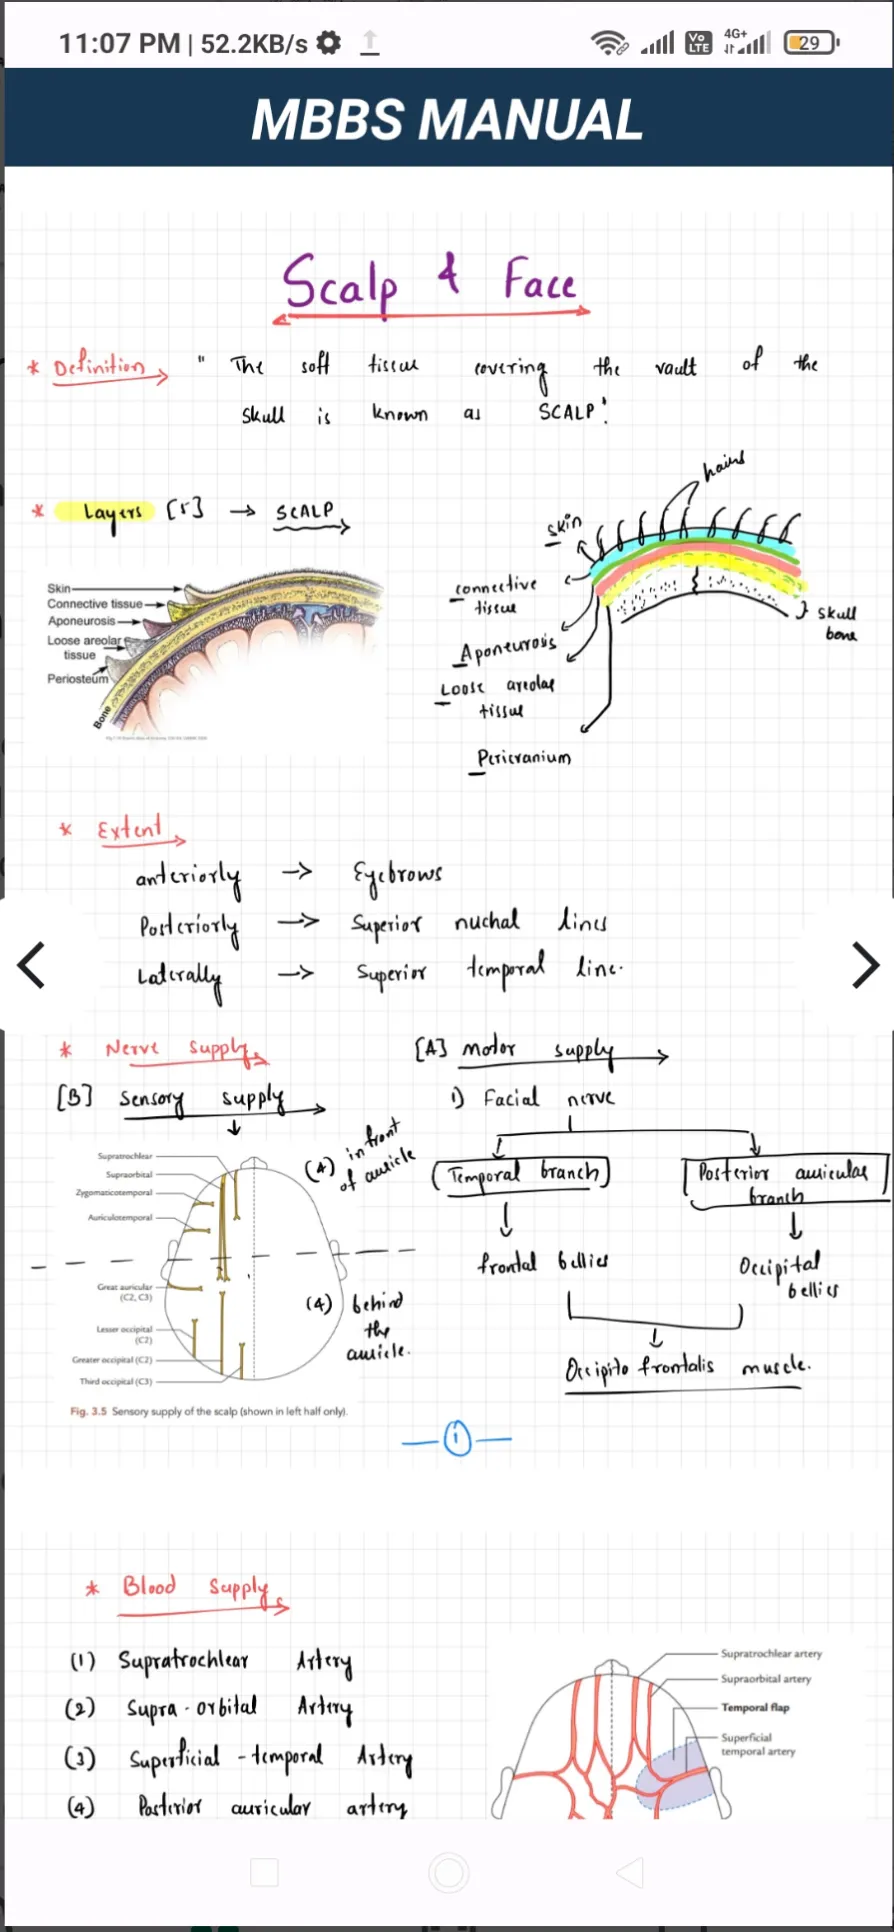 11:07 PM | 52.2KB/s
Vo LTE 4G+ 29
MBBS MANUAL
Scalp & Face
* Definition " The soft tissue covering the vault of the
skull is known as SCALP".
* Layers [5] → SCALP
hairs
skin
connective
tissue
Aponeurosis
Loose areolar
tissue
Pericranium
skull
bone
Skin
Connective tissue
Aponeurosis
Loose areolar
tissue
Periosteum
Bone
* Extent
anteriorly → Eyebrows
Posteriorly → Superior nuchal lines
Laterally → Superior temporal line.
* Nerve supply
[A] motor supply
1) Facial nerve
Temporal branch
Posterior auricular
branch
frontal bellies
Occipital
bellies
Occipito frontalis muscle.
[B] Sensory supply
(4) in front
of auricle
(4) behind
the
auricle.
Supratrochlear
Supraorbital
Zygomaticotemporal
Auriculotemporal
Great auricular
(C2, C3)
Lesser occipital
(C2)
Greater occipital (C2)
Third occipital (C3)
Fig. 3.5 Sensory supply of the scalp (shown in left half only).
1
* Blood Supply
(1) Supratrochlear Artery
(2) Supra-orbital Artery
(3) Superficial-temporal Artery
(4) Posterior auricular artery
Supratrochlear artery
Supraorbital artery
Temporal flap
Superficial
temporal artery